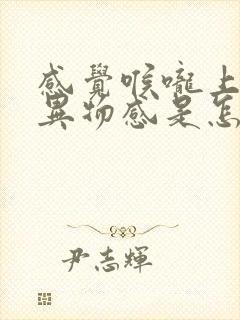 感覺喉嚨上
異物感是怎
尹志輝